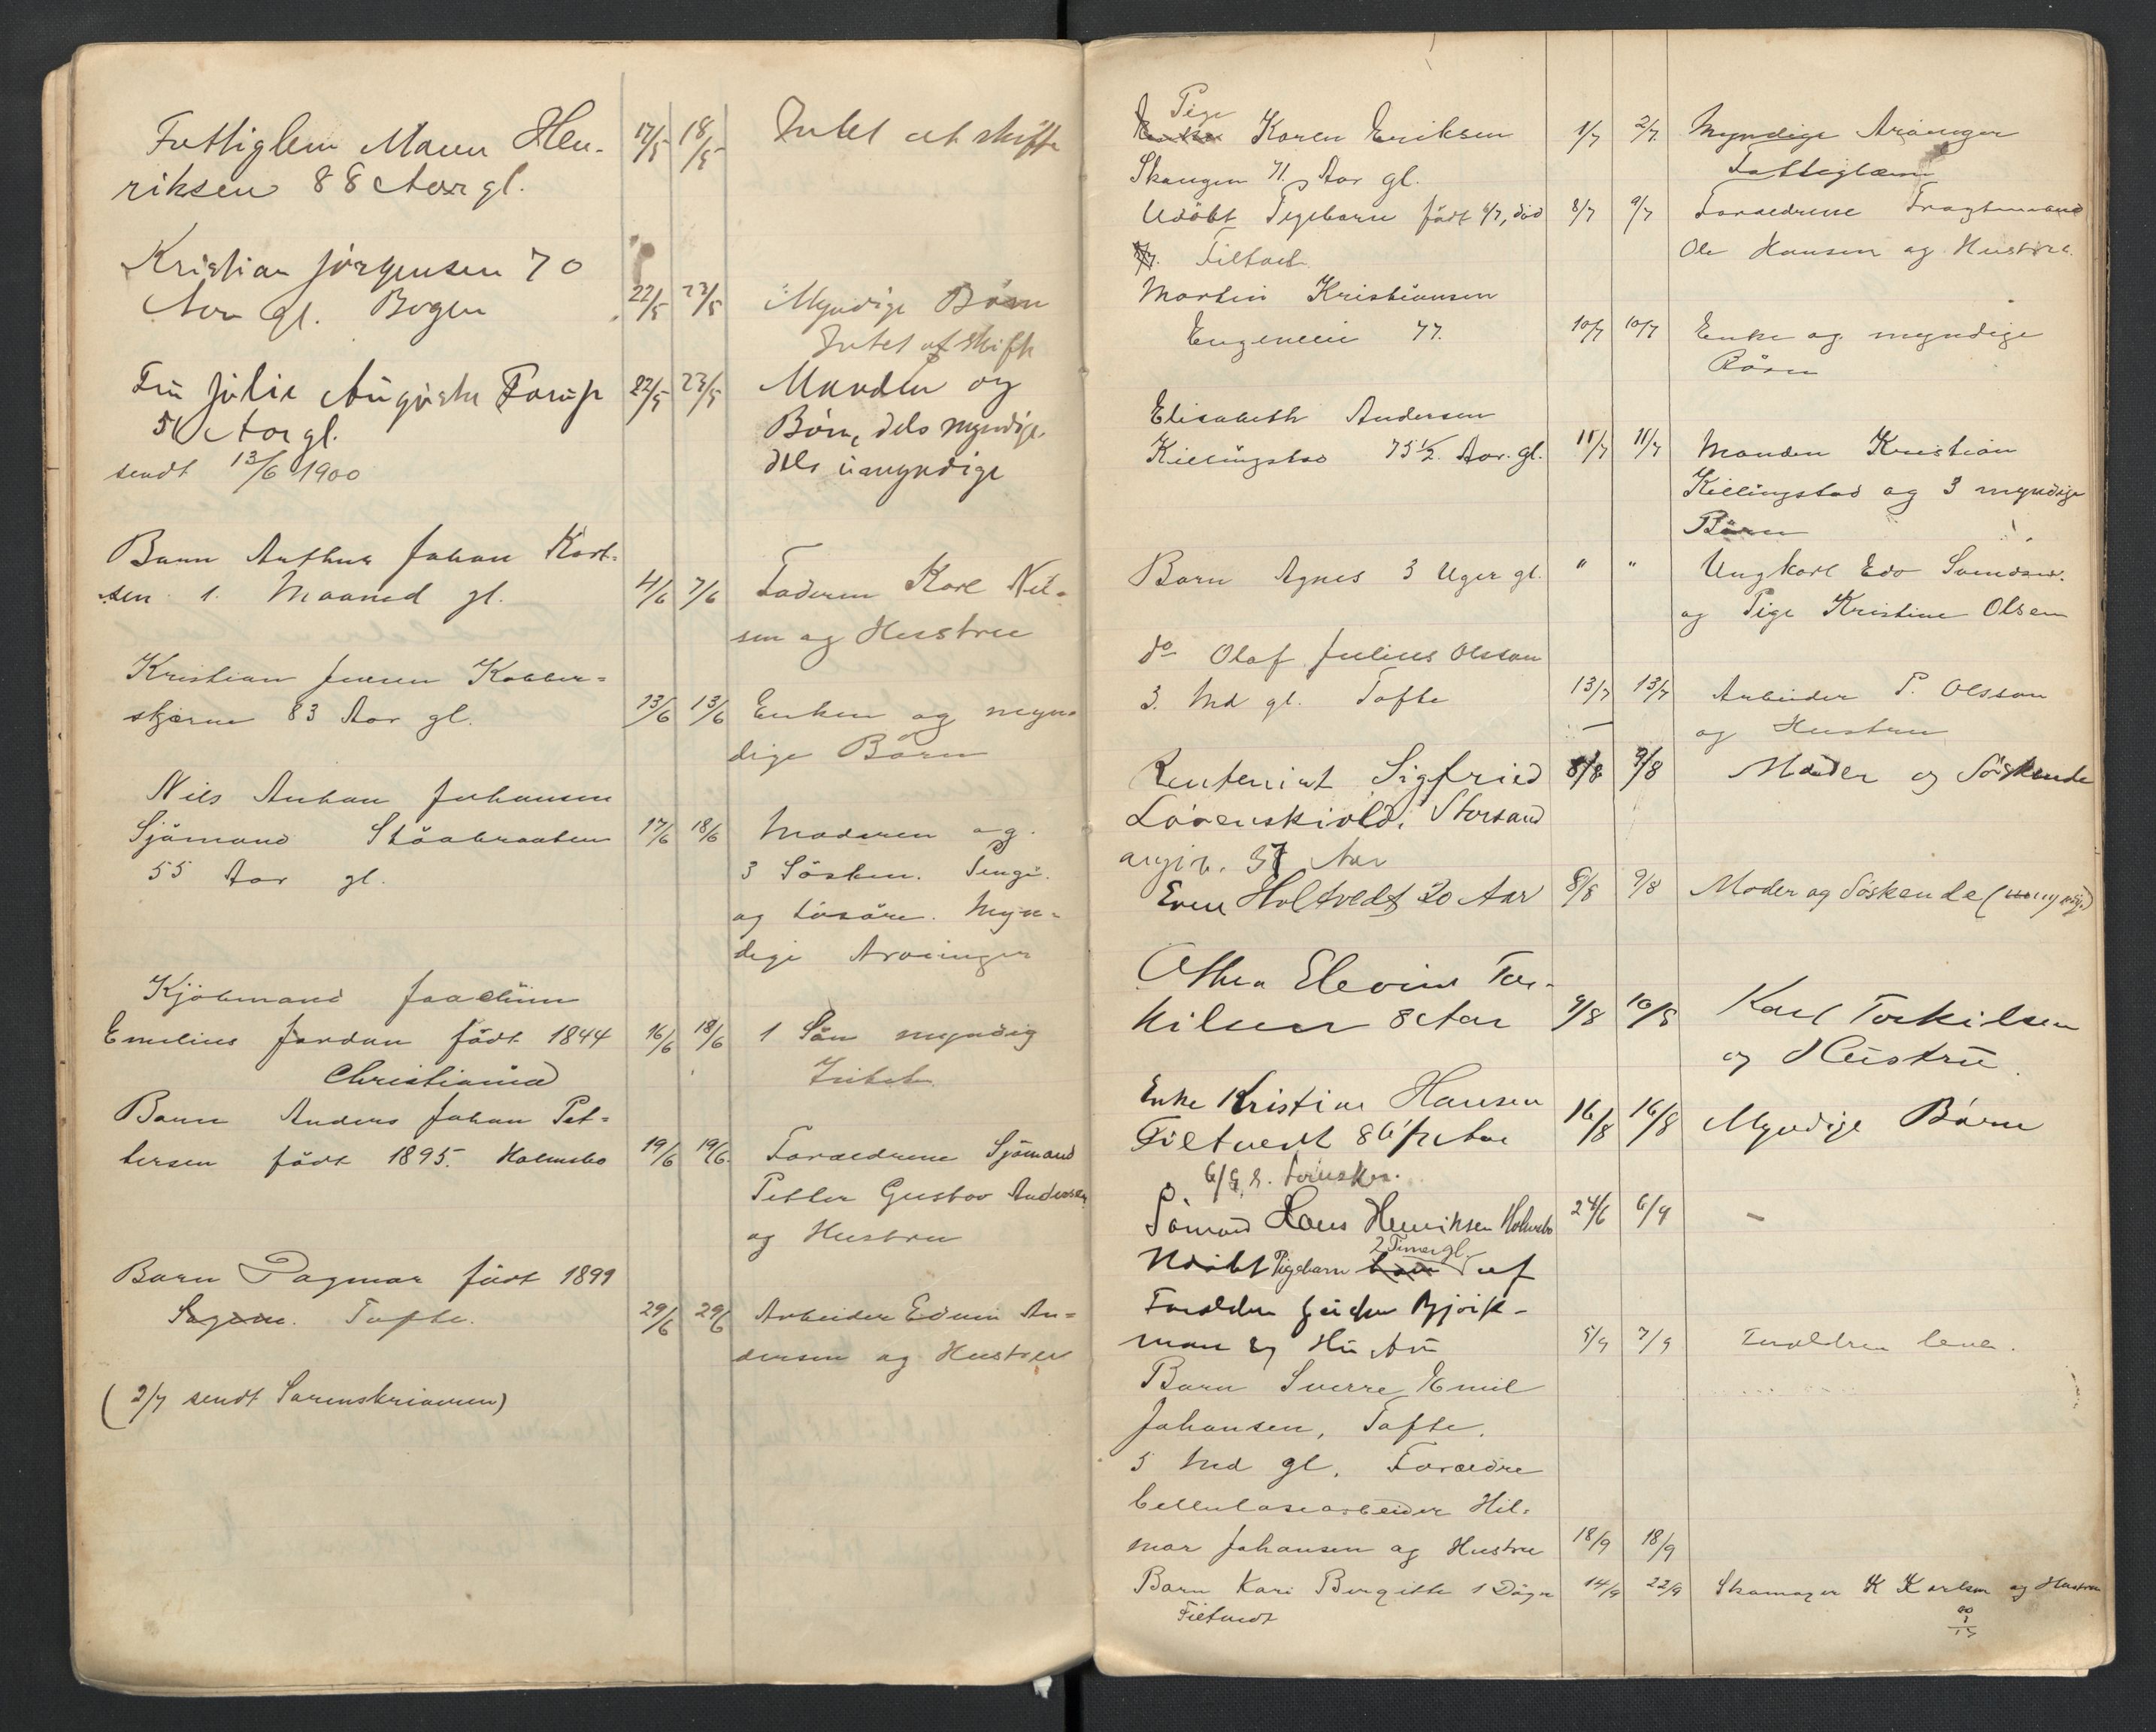 Fattiglem Maren Hen-
riksen 88 Aar gl.
17/5 18/5 Intet at skifte
Kristian Jörgensen 70
Aar gl. Bogen
22/5 23/5 Myndige Börn
Intet at skifte
Fru Julie Augusta Torup
51 Aar gl.
sendt 13/6 1900
22/5 23/5 Manden og
Börn, dels myndige
dels umyndige
Barn Arthur Johan Karl-
sen 1 Maaned gl.
4/6 7/6 Faderen Karl Nil-
sen og Hustru
Kristian Jensen Kobber-
skjærne 83 Aar gl.
13/6 13/6 Enken og myn-
dige Börn
Nils Anton Johansen
Sjömand Stöabraaten
55 Aar gl.
17/6 18/6 Moderen og
3 Sösken. Penge.
og Lösöre. Myn-
dige Arvinger
Kjöbmand Joachim
Emilius Jordan födt 1844
Christiania
16/6 18/6 1 Sön myndig
Intet
Barn Anders Johan Pet-
tersen födt 1895. Holmsbo
19/6 19/6 Forældrene Sjömand
Petter Gustav Andersen
og Hustru
Barn Dagmar födt 1899
Sagene. Tofte.
29/6 29/6 Arbeider Edvin An-
dersen og Hustru
(2/7 sendt Sorenskriveren)
Pige
Enke Karen Eriksen
Skaugen 71 Aar gl.
1/7 2/7 Myndige Arvinger
Fattiglem
Udöbt Pigebarn födt 4/7, död
Filtvet
8/7 9/7 Forældrene Fragtmand
Ole Hansen og Hustru
Martin Kristiansen
Engene 77.
10/7 10/7 Enke og myndige
Börn
Elisabeth Andersen
Killingstad 75 1/2 Aar gl.
11/7 11/7 Manden Kristian
Killingstad og 3 myndige
Börn
Barn Agnes 3 Uger gl. " " Ungkarl Edv Svendsen.
og Pige Kristine Olsen
do Olaf Julius Olsson
3 Md gl. Tofte
13/7 13/7 Arbeider P. Olsson
og Hustru
Rentenist Sigfried
Lövenskiold, Storsand
angiv. 37 Aar
8/8 9/8 Moder og Söskende
Even Holtvedt 20 Aar 8/8 9/8 Moder og Söskende (umyndige)
Othea Elevine Tor-
kilsen 8 Aar
9/8 10/8 Karl Torkilsen
og Hustru.
Enke Kristine Hansen
Filtvedt 86 1/2 Aar
16/8 16/8 Myndige Börn
6/9 s. Sorenskr.
Sömand Hans Henriksen Holmsbo 24/6 6/9 -
2 Timer gl.
Udöbt Pigebarn af
man og Hustru
5/9 7/9 Forældre lever.
Barn Sverre Emil
Johansen, Tofte.
5 Md gl. Forældre
Cellulosearbeider Hil-
mar Johansen og Hustru 18/9 18/9
Barn Kari Bergitte 1 Dögn 14/9 22/9 Skomager K Karlsen og Hustru
Filtvedt